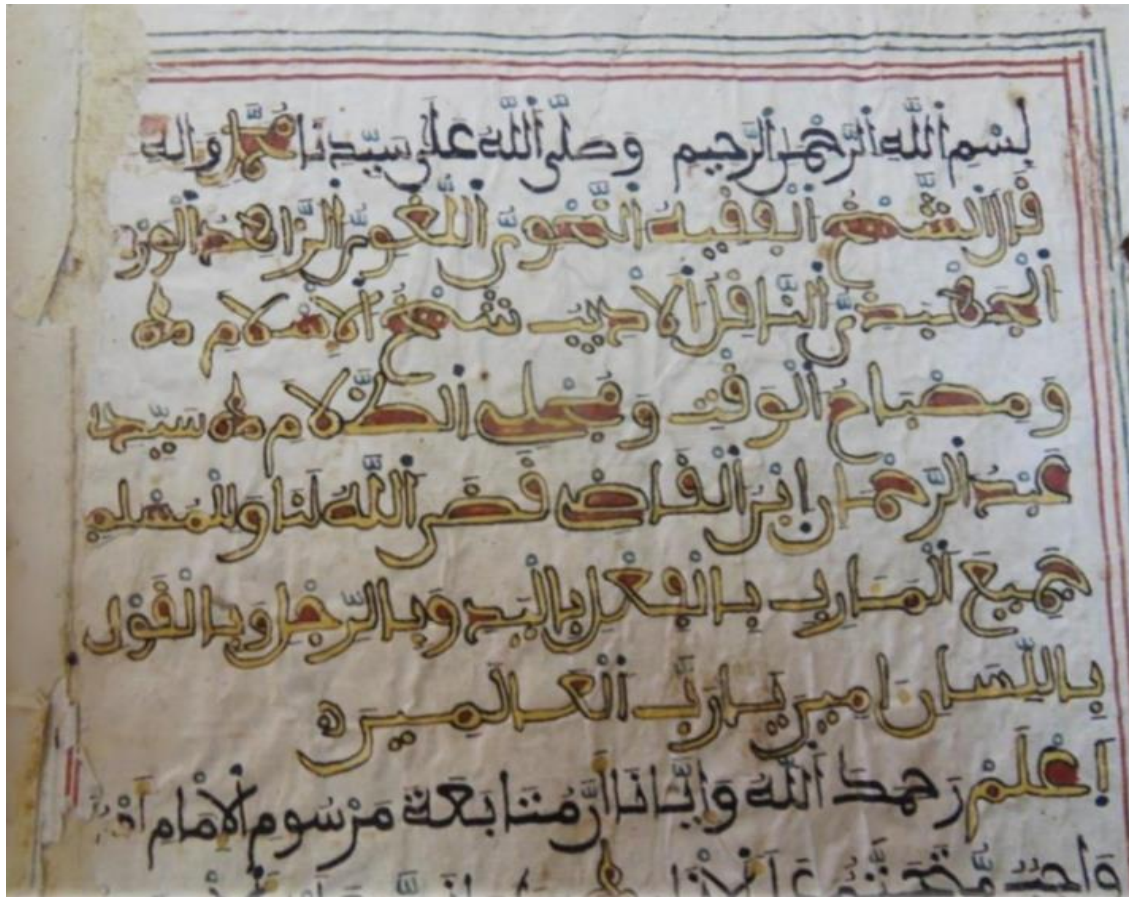 بِسْمِ اللَّهِ الرَّحْمٰنِ الرَّحِيمِ وَصَلَّى اللَّهُ عَلَى سَيِّدِنَا مُحَمَّدٍ وَالِهِ
قَالَ الشَّيْخُ الْفَقِيهُ النَّحْوِيُّ اللُّغَوِيُّ الزَّاهِدُ الْوَرِ
الْجَهْبَذِيُّ النَّاقِلُ الْادِيبُ شَيْخُ الْاِسْلَامِ
وَمِصْبَاحُ الْوَقْتِ وَمُجْلِي الظَّلَامِ سَيِّدِ
عَبْدُ الرَّحْمَانِ ابْنُ الْقَاضِ قَضَى اللَّهُ لَنَا وَلِلْمُسْلِمِ
جَمِيعَ الْمَـَارِبِ بِالْفِعْلِ بِالْيَدِ وَبِالرِّجْلِ وَبِالْقَوْلِ
بِاللِّسَانِ امِينَ يَارَبَّ الْعَالَمِينَ
اِعْلَمْ رَحِمَكَ اللَّهُ وَإِيَّانَا أَنَّ مُتَابَعَةَ مَرْسُومِ الْاِمَامِ
وَاجِبٌ